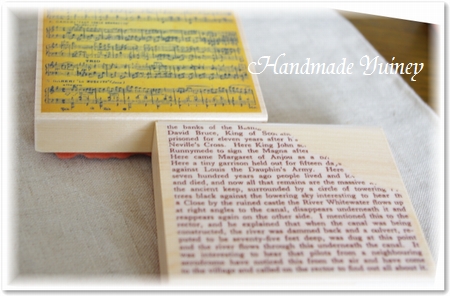 Handmade Yuiney
the banks of the
David Bruce, King of
prisoned for eleven years after
Neville's Cross. Here King John
Runnymede to sign the Magna after
Here came Margaret of Anjou as a
Here a tiny garrison held out for fifteen
against Louis the Dauphin's Army. Here
seven hundred years ago people lived and
and died, and now all that remains are the massive
the ancient keep, surrounded by a circle of towering
trees black against the lowering sky interesting to hear
a Close by the ruined castle the River Whitewater flows up
at right angles to the canal, disappears underneath it and
reappears again on the other side. I mentioned this to the
rector, and he explained that when the canal was being
constructed, the river was dammed back and a culvert, re-
puted to be seventy-five feet deep, was dug at this point
and the river flows through this underneath the canal. It
was interesting to hear that pilots from a neighbouring
aerodrome have noticed this from the air and have come
to the village and called on the rector to find out all about it